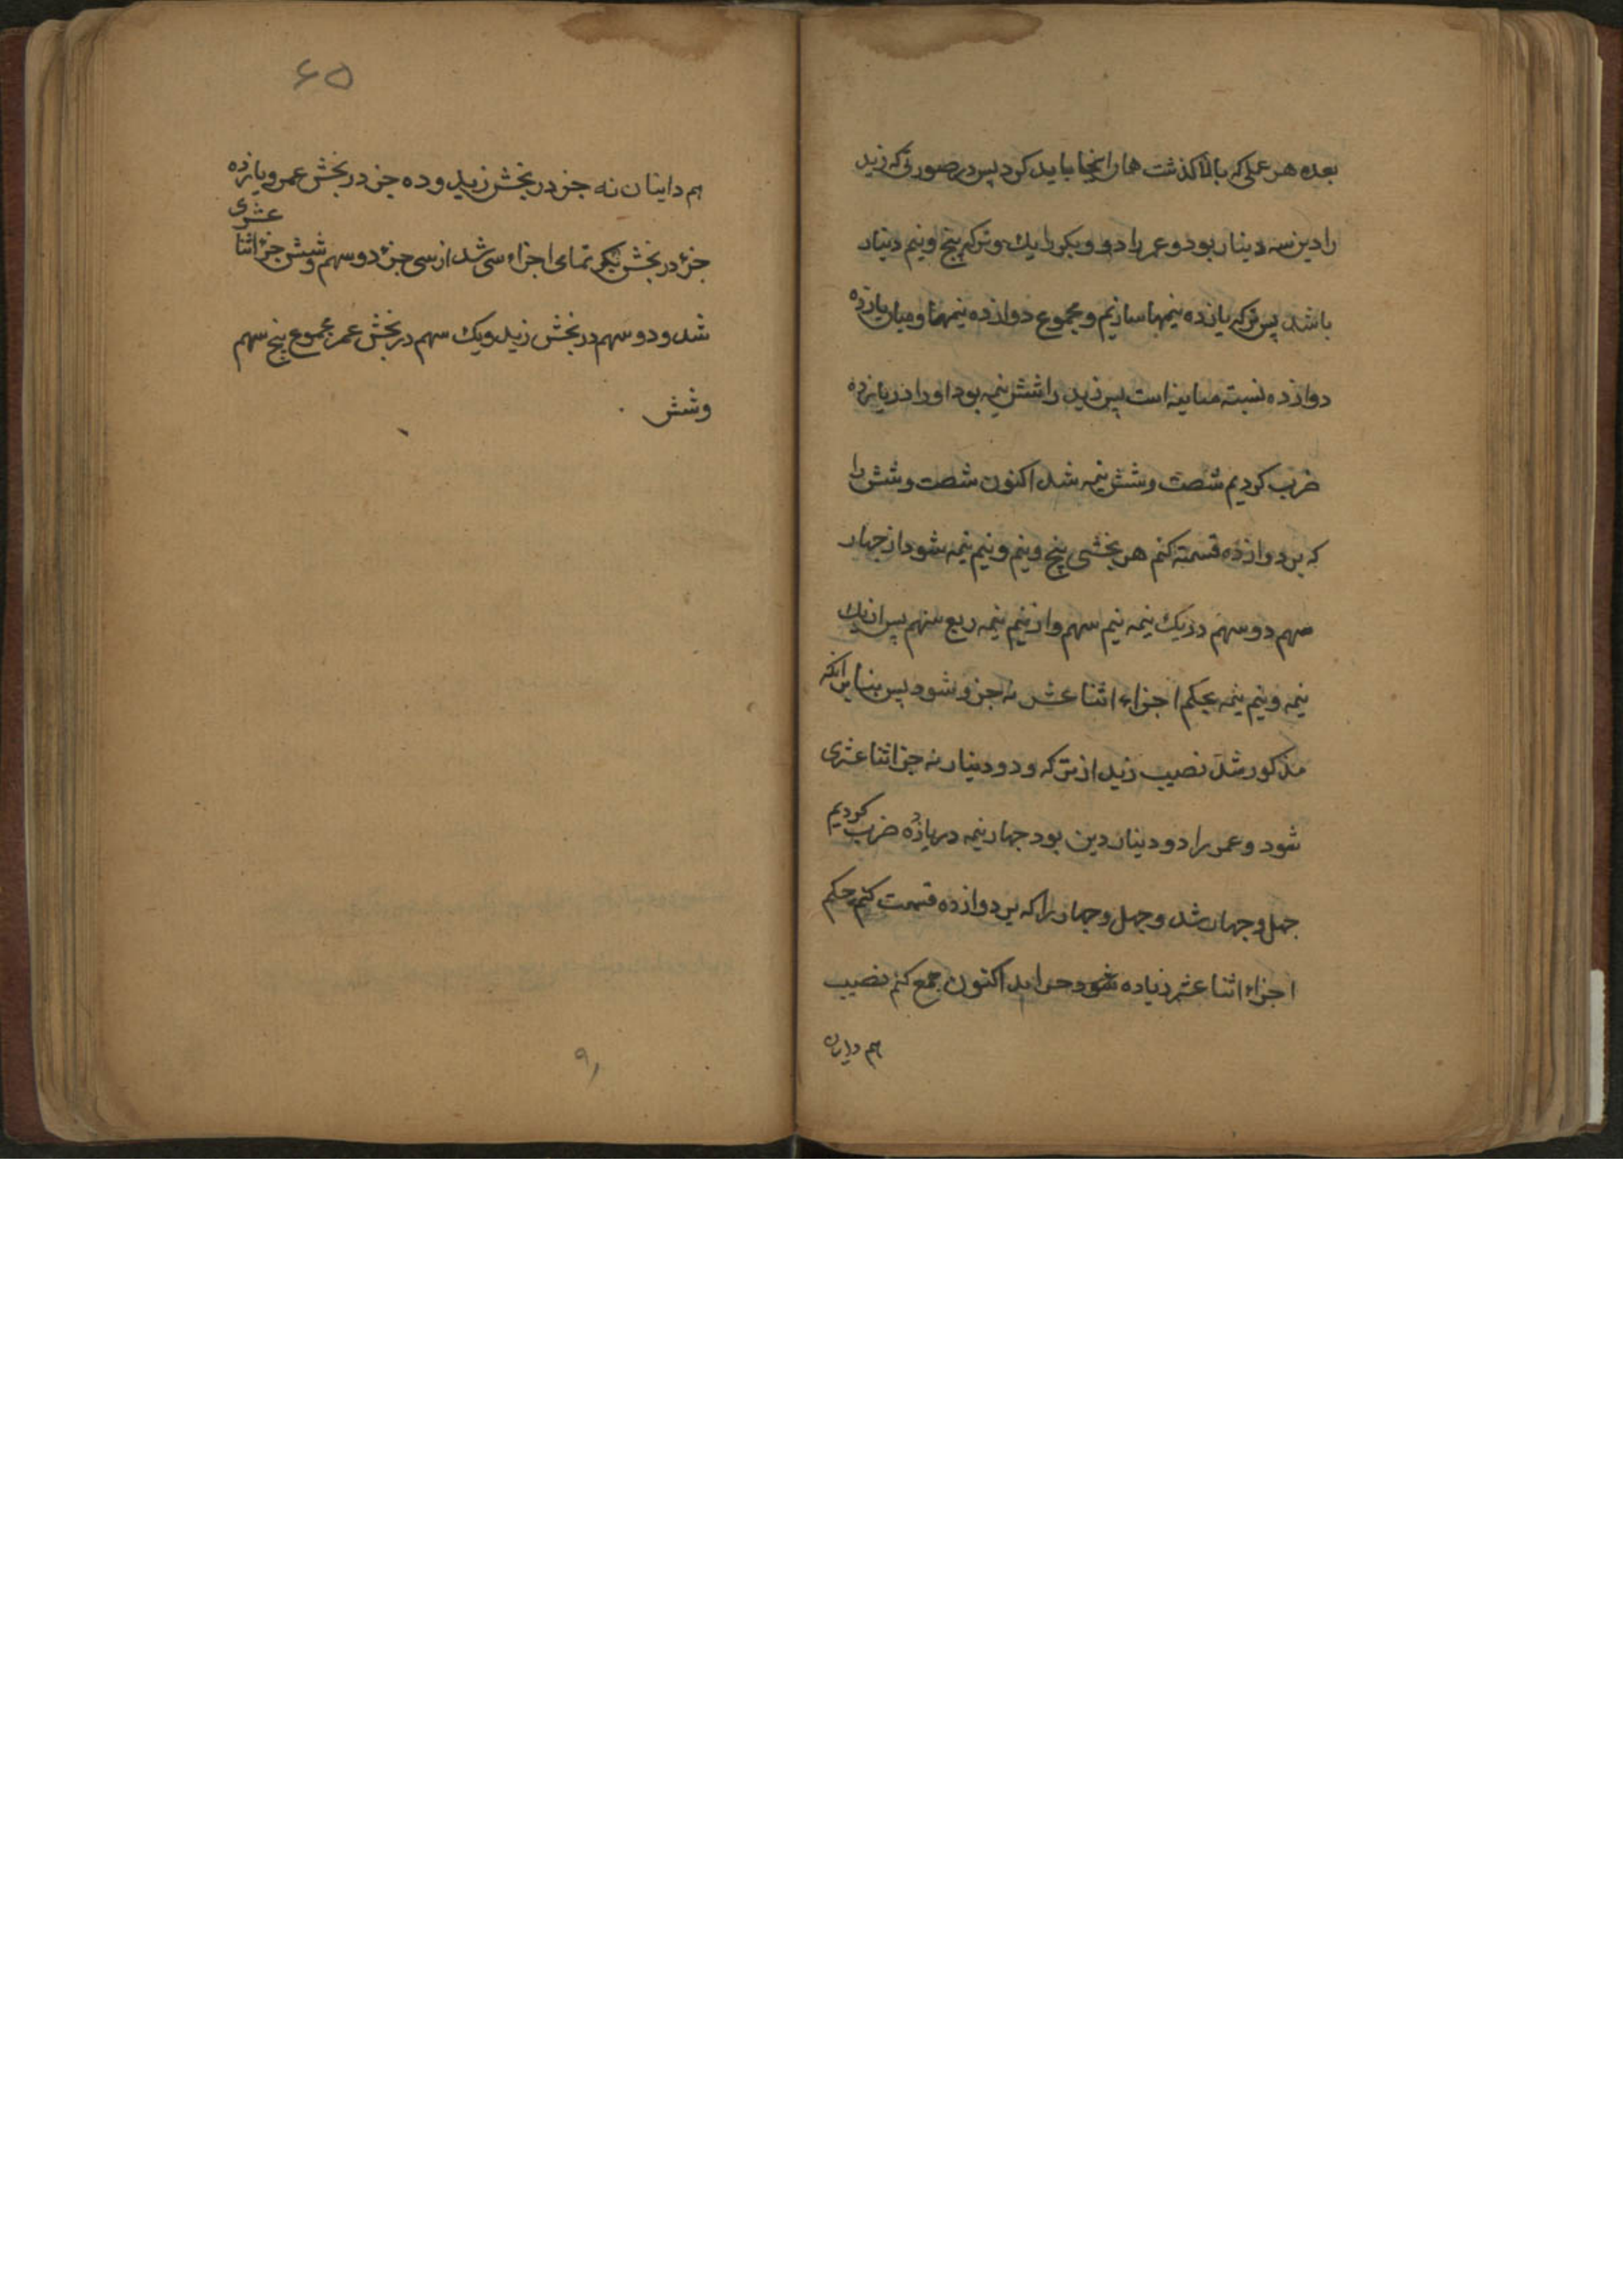 بعده هر عملی که بالا کذشت همان اینجا باید کرد پس در صورتی که زید
را دین سه دینار بود و عمر را دو و بکر را یک و ترکه پنج و نیم دینار
باشد پس ترکه یازده نیمها سازیم و مجموع دوازده نیمها و میان یازده
دوازده نسبته مباینه است پس زید را شش نیمه بود او را در یازده
ضرب کردیم شصت و شش نیمه شد اکنون شصت و شش را
که بر دوازده قسمته کنم هر بخشی پنج و نیم و نیم نیمه شود از جهار
سهم دو سهم در یک نیمه نیم سهم و از نیم نیمه ربع سهم پس از یک
نیمه و نیم نیمه بحکم اجزاء اثنا عشر نه جزو شود پس بنا بر آنکه
مذکور شد نصیب زید از ترکه و دو دینار نه جز اثنا عشری
شود و عمر را دو دینار دین بود جهار نیمه در یازده ضرب کردیم
جهل و جهار شد و جهل و جهار را که بر دوازده قسمت کنم بحکم
اجزاء اثنا عشر زیاده شود اکنون جمع کنم نصیب
هم داینان
۶۵
هم داینان نه جز در بخش زید و ده جز در بخش عمر و یازده
جزء در بخش بکر تمامی اجزاء سی شد از سی جزء دو سهم و شش جزء اثنا عشری
شد و دو سهم در بخش زید و یک سهم در بخش عمر مجموع پنج سهم
و شش